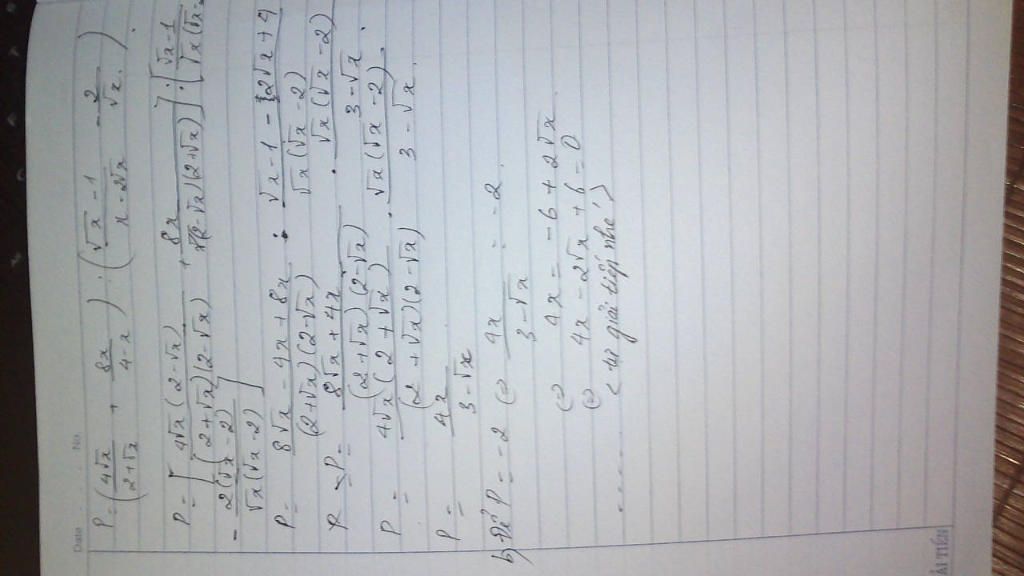 Date No.
P = (4√x/(2+√x) + 8x/(4-x)) : ((√x-1)/(x-2√x) - 2/√x)
P = [4√x(2-√x)/((2+√x)(2-√x)) + 8x/((2-√x)(2+√x))] : [(√x-1)/(√x(√x-2))
- 2(√x-2)/(√x(√x-2))]
P = (8√x - 4x + 8x)/((2+√x)(2-√x)) : (√x-1-2√x+4)/(√x(√x-2))
P = (8√x + 4x)/((2+√x)(2-√x)) . √x(√x-2)/(3-√x)
P = 4√x(2+√x)/((2+√x)(2-√x)) . √x(√x-2)/(3-√x)
P = 4x/(3-√x)
b) Để P = -2 <=> 4x/(3-√x) = -2
<=> 4x = -6 + 2√x
<=> 4x - 2√x + 6 = 0
..... < tự giải tiếp nhé >
ẢI TIẾN